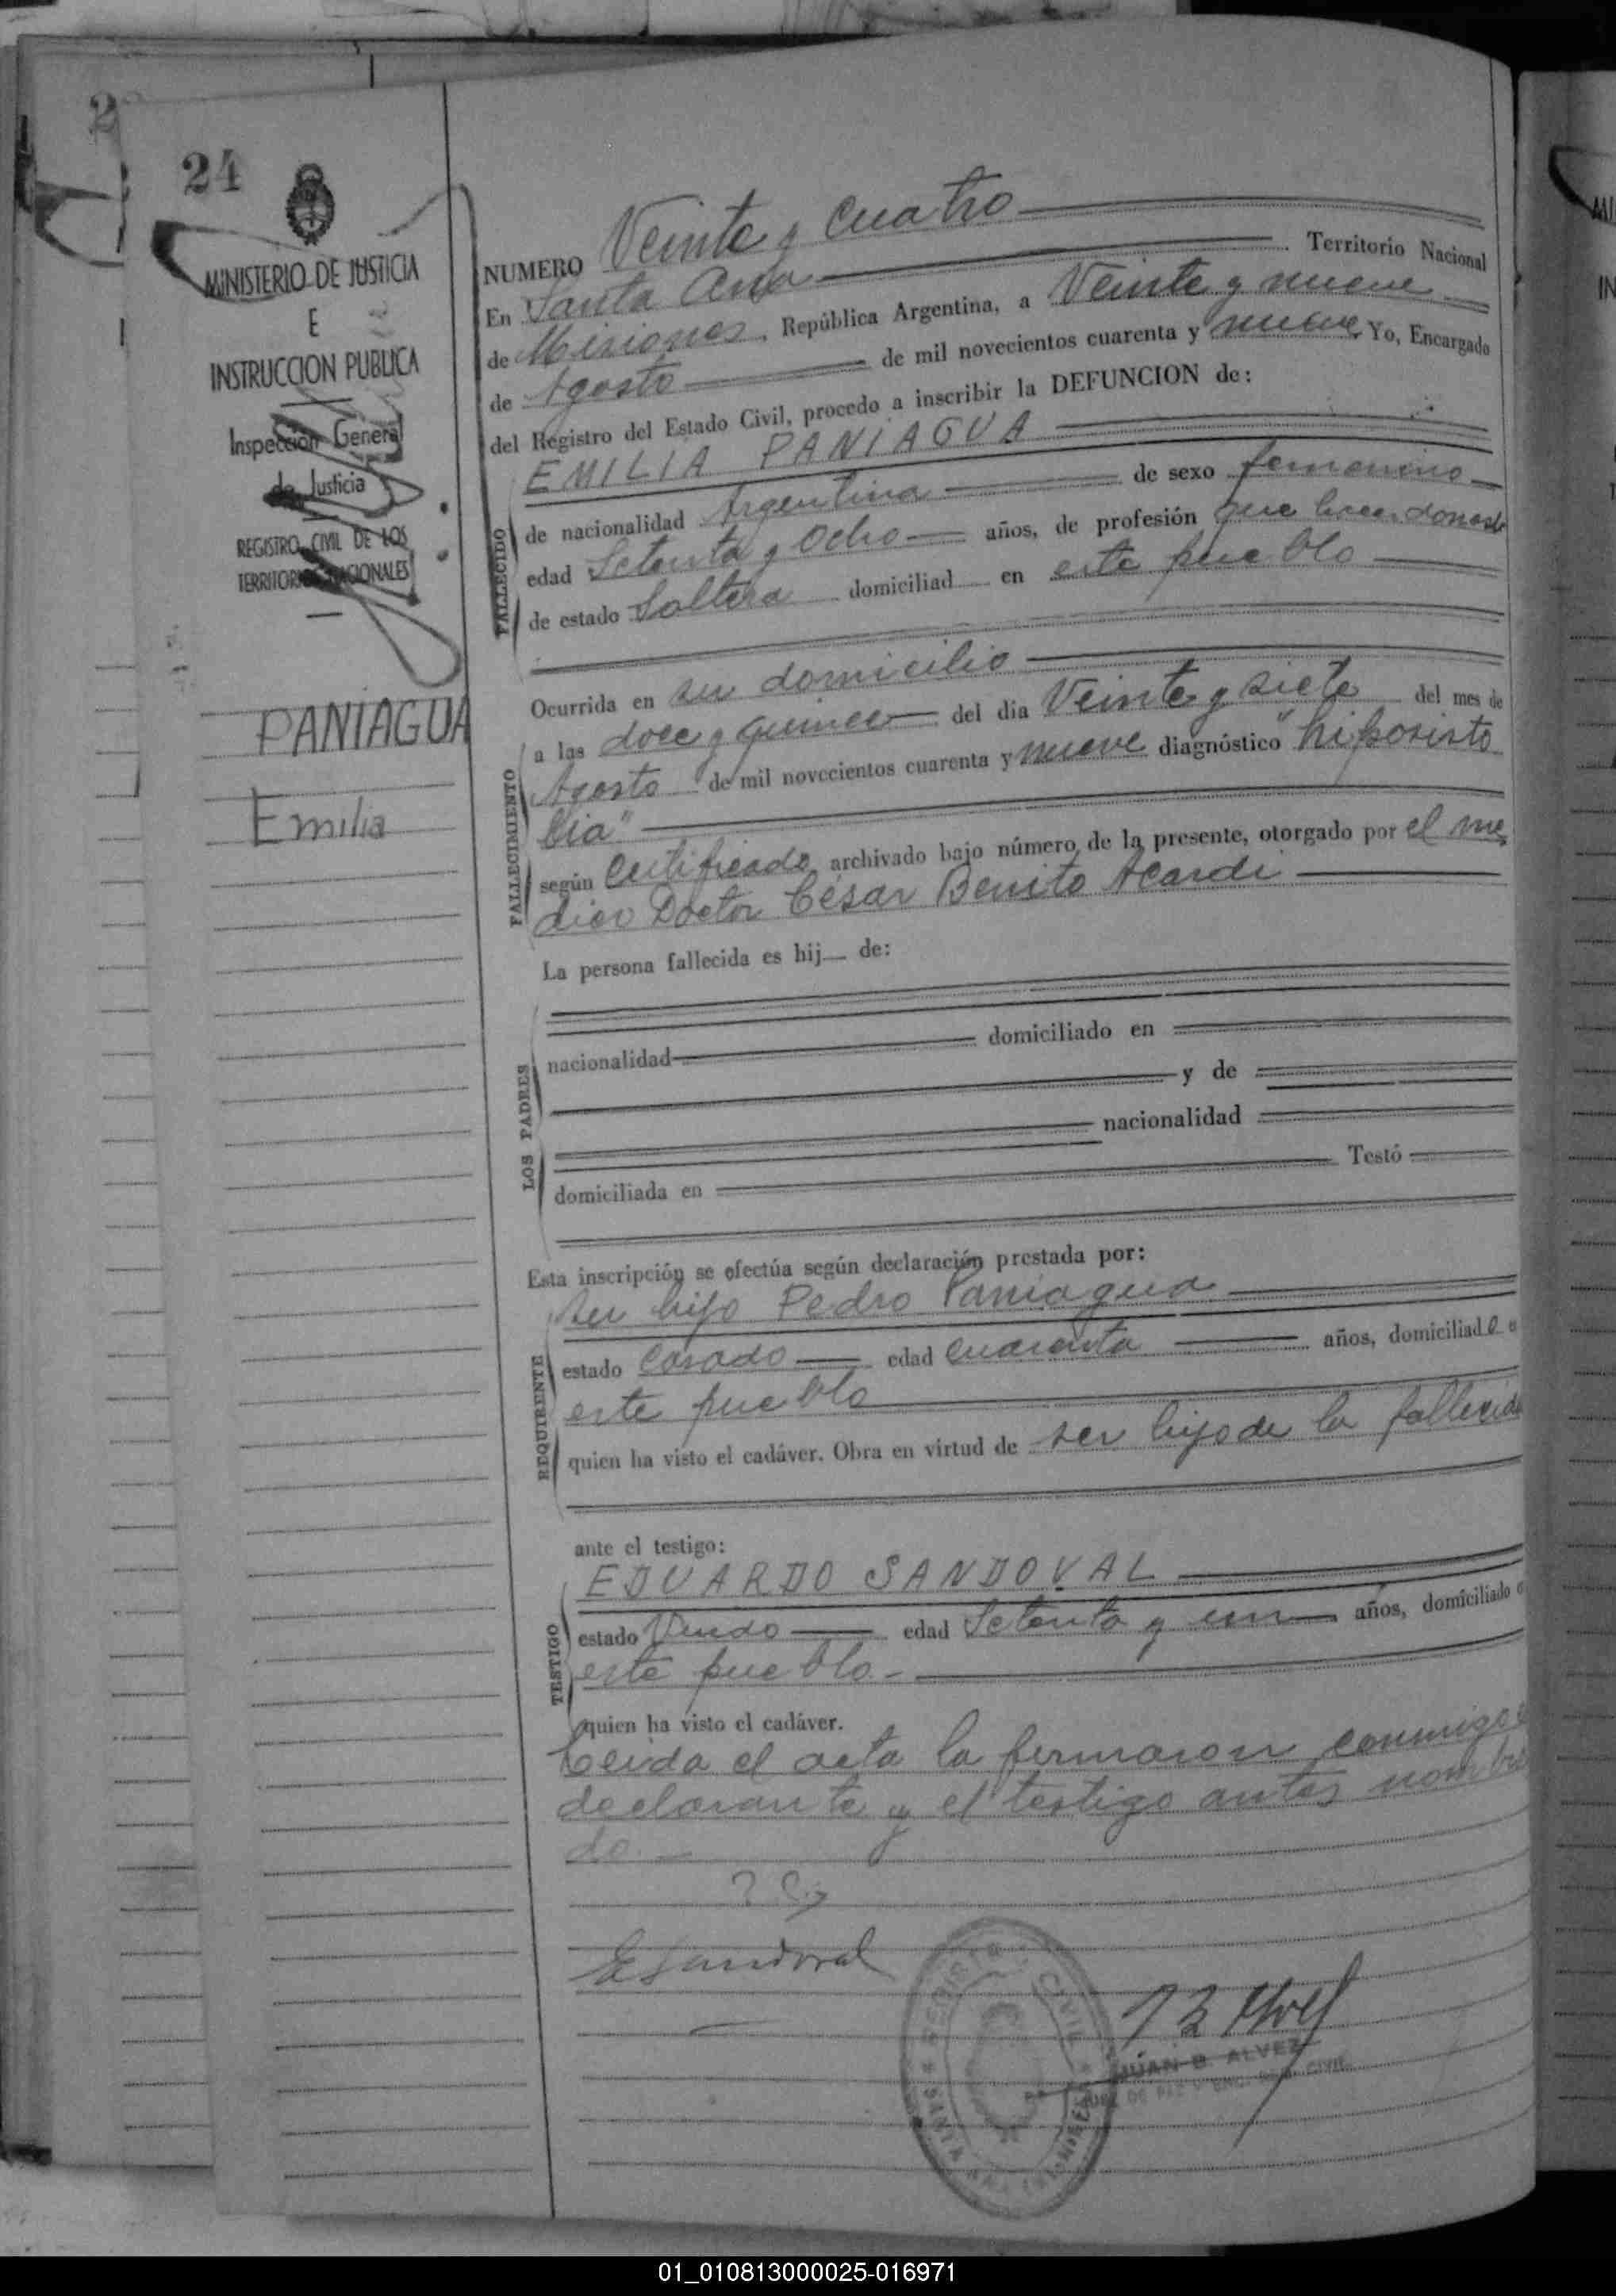 2
24
MINISTERIO DE JUSTICIA
E
INSTRUCCION PUBLICA
Inspección General
de Justicia
REGISTRO CIVIL DE LOS
TERRITORIOS NACIONALES
PANIAGUA
Emilia
NUMERO Veinte y cuatro
En Santa Ana Territorio Nacional
de Misiones, República Argentina, a Veinte y nueve
de Agosto de mil novecientos cuarenta y nueve Yo, Encargado
del Registro del Estado Civil, procedo a inscribir la DEFUNCION de:
EMILIA PANIAGUA
FALLECIDO
de nacionalidad Argentina de sexo femenino
edad Setenta y Ocho años, de profesión que hacer. domest
de estado Soltera domiciliad en este pueblo
Ocurrida en su domicilio
a las doce y quince del dia Veinte y siete del mes de
FALLECIMIENTO
Agosto de mil novecientos cuarenta y nueve diagnóstico "hiposisto
lia"
según Certificado archivado bajo número de la presente, otorgado por el me
dico Doctor César Benito Acardi
La persona fallecida es hij de:
LOS PADRES
nacionalidad domiciliado en
y de
nacionalidad
domiciliada en Testó
Esta inscripción se efectúa según declaración prestada por:
su hijo Pedro Paniagua
REQUIRENTE
estado Casado edad cuarenta años, domiciliado e
este pueblo
quien ha visto el cadáver. Obra en virtud de ser hijo de la fallecida
ante el testigo:
EDUARDO SANDOVAL
TESTIGO
estado Viudo edad Setenta y un años, domiciliado e
este pueblo.-
quien ha visto el cadáver.
Leida el acta la firmaron conmigo e
declarante y el testigo antes nombra
do.-
E Sandoval
REGISTRO CIVIL
SANTA ANA
JUAN B. ALVEZ
JUEZ DE PAZ Y ENC. REG. CIVIL
01_010813000025-016971